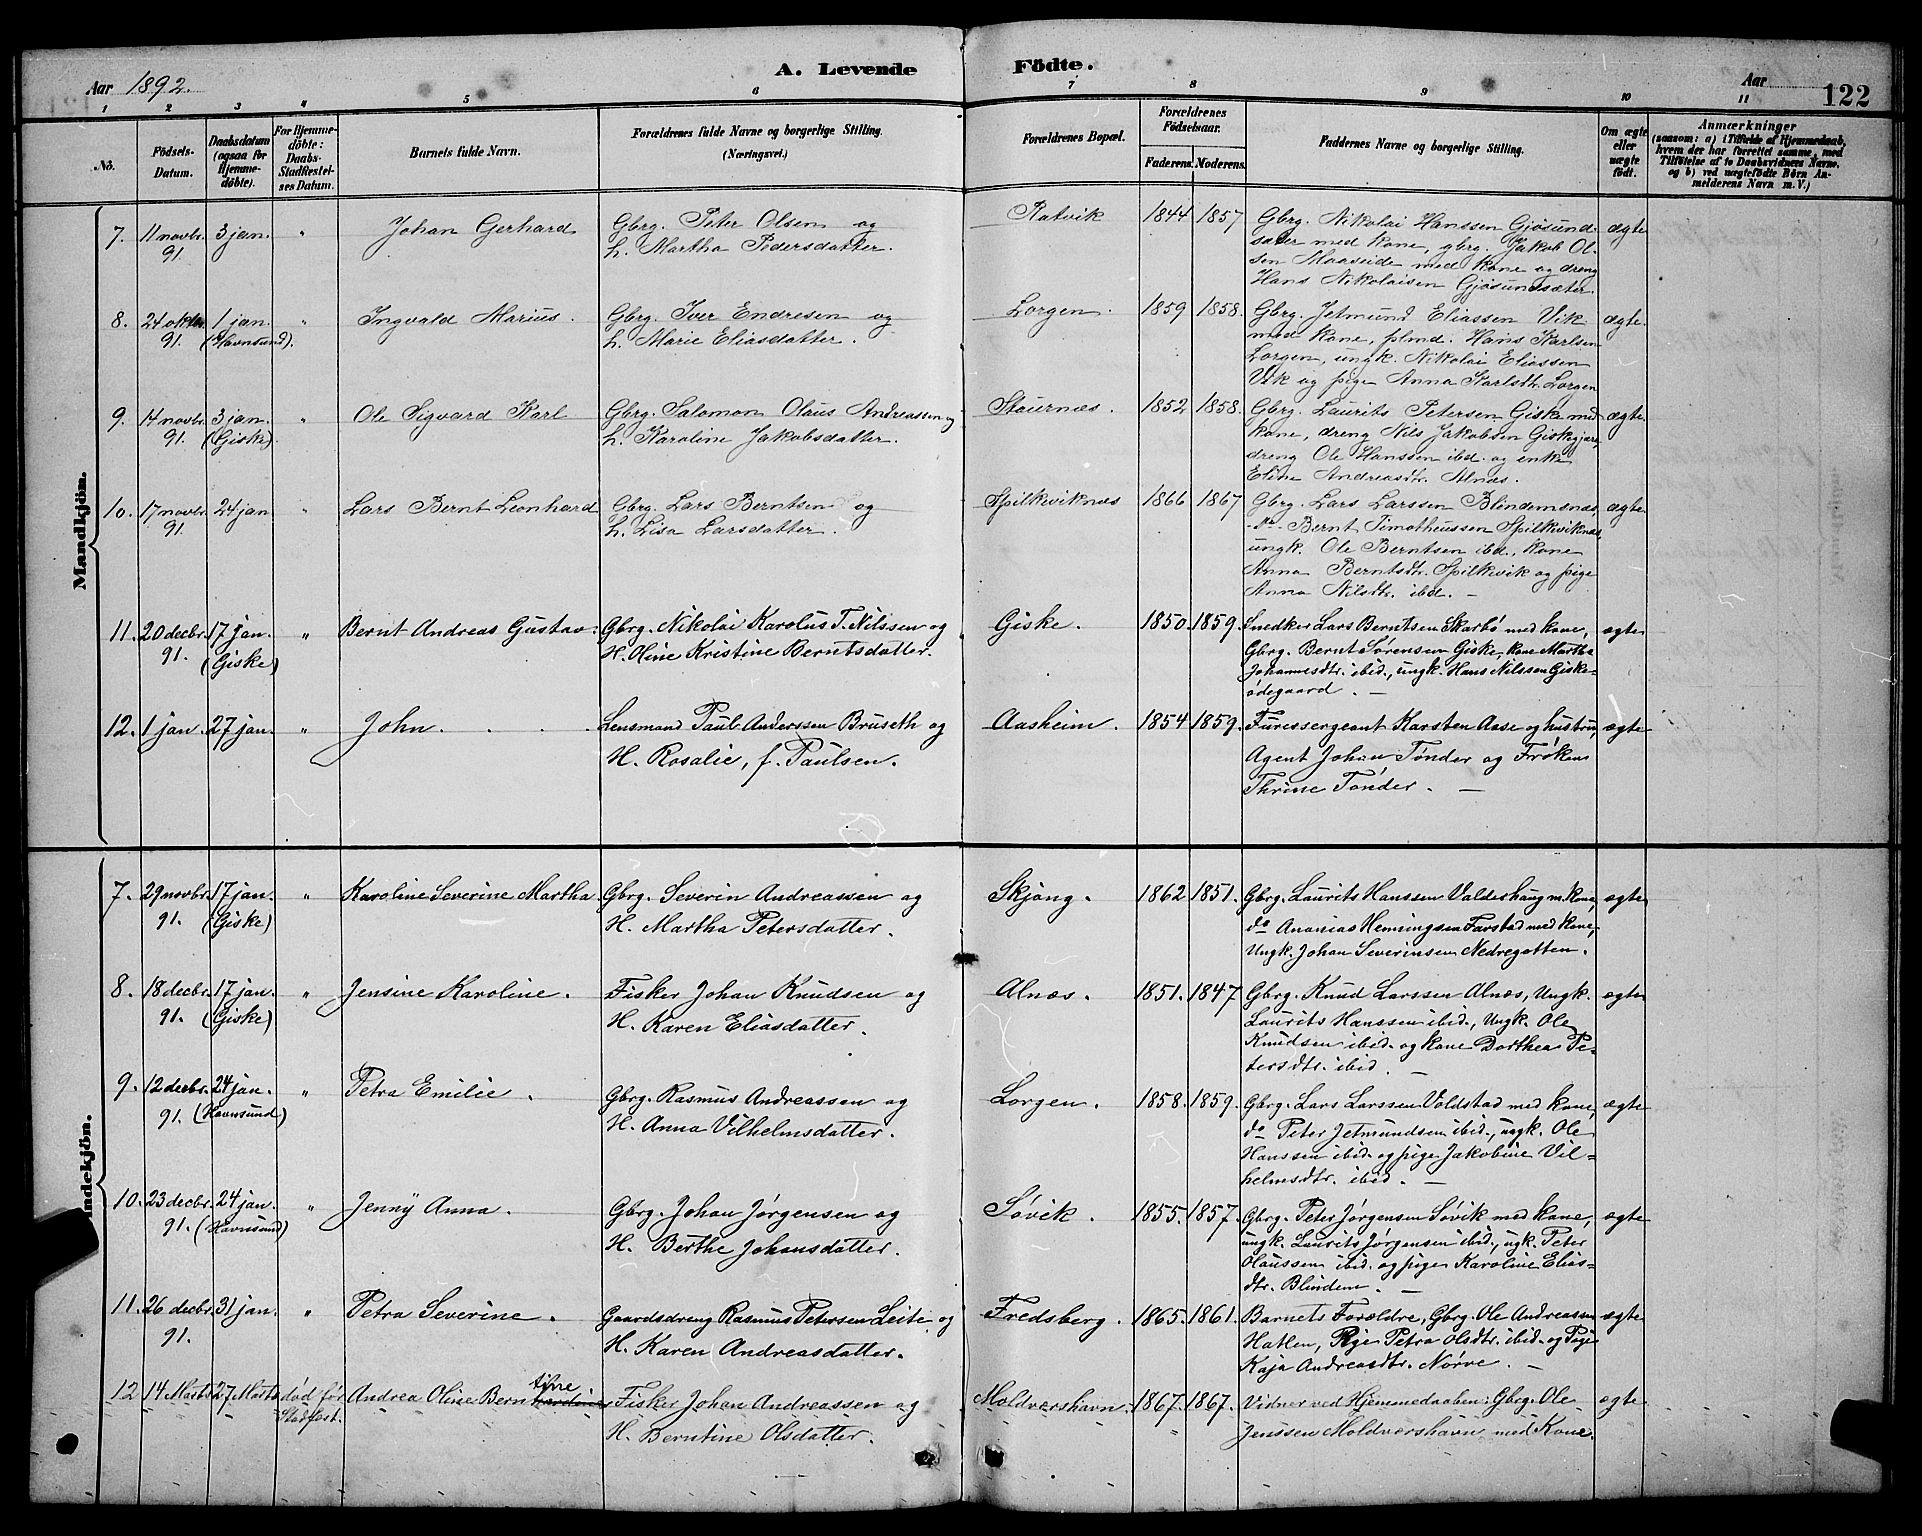 Aar 1892.
A. Levende Födte.
Aar
122
1 2 3 4 5 6 7 8 9 10 11
No.
Födsels-Datum.
Daabsdatum (ogsaa for Hjemmedöbte).
For Hjemmedöbte: Daabs-Stadfæstelses Datum.
Barnets fulde Navn.
Forældrenes fulde Navne og borgerlige Stilling. (Næringsvei.)
Forældrenes Bopæl.
Forældrenes Födselsaar.
Faderens. Moderens.
Faddernes Navne og borgerlige Stilling.
Om ægte eller uægte födt.
Anmærkninger
(saasom: a) i Tilfælde af Hjemmedaab, hvem der har forrettet samme, med Tilföielse af to Daabsvidners Navne. og b) ved uægtefödte Börn Anmelderens Navn m. V.)
Mandkjön.
7. 11 novbr. 3 jan. " Johan Gerhard Gbrg. Peter Olsen og Ratvik 1844 1857 Gbrg. Nikolai Hanssen Gjøsund- ægte
91. h. Martha Pedersdatter. sæter med kone, gbrg. Jakob Ol-
sen Maaseide med kone og dreng
Hans Nikolaisen Gjøsundsæter.
8. 24 oktbr. 1 jan. " Ingvald Marius. Gbrg. Iver Endresen og Lorgen. 1859 1858. Gbrg. Jetmund Eliassen Vik ægte.
91. (Havnsund). h. Marie Eliasdatter. med kone, plmd. Hans Karlsen
Lorgen, ungk. Nikolai Eliassen
Vik og pige Anna Karlsdtr. Lorgen
9. 14 novbr. 3 jan. " Ole Sigvard Karl Gbrg. Salomon Olaus Andreassen og Staurnæs. 1852 1858. Gbrg. Laurits Petersen Giske med ægte.
91. (Giske). h. Karoline Jakobsdatter. kone, dreng Nils Jakobsen Giskegjære,
dreng Ole Hanssen ibd. og enke
Eline Andreasdtr. Alnæs.
10. 17 novbr. 24 jan " Lars Bernt Leonhard Gbrg. Lars Berntsen og Spilkeviknæs 1866 1867 Gbrg. Lars Larssen Blindemsnæs, ægte.
91. h. Lisa Larsdatter. -do- Bernt Timotheussen Spilkeviknæs,
ungk. Ole Berntsen ibd., kone
Anna Berntsdtr. Spilkevik og pige
Anna Nilsdtr. ibd. —
11. 20 decbr. 17 jan. " Bernt Andreas Gustav. Gbrg. Nikolai Karolus T. Nilssen og Giske. 1850. 1859. Snedker Lars Berntsen Skarbø med kone, ægte
91. (Giske) H. Oline Kristine Berntsdatter. Gbrg. Bernt Sørensen Giske, kone Martha
Johannesdtr. ibid., ungk. Hans Nilssen Giske-
ødegaard. —
12. 1 jan. 27 jan. " John. Lensmand Paul Anderssen Bruseth og Aasheim. 1854 1859. Furersergeant Karsten Aase og hustru, ægte
H. Rosalie, f. Paulsen. Agent Johan Tønder og Frøken
Thrine Tønder. —
Kvindekjön.
7. 29 novbr. 17 jan. " Karoline Severine Martha. Gbrg. Severin Andreassen og Skjong. 1862 1851. Gbrg. Laurits Hanssen Valdeshaug m. kone, ægte
91. (Giske) H. Martha Petersdatter. do Ananias Henningsen Farstad med kone,
Ungk. Johan Severinsen Nedregotten.
8. 18 decbr. 17 jan. " Jensine Karoline. Fisker Johan Knudsen og Alnæs. 1851. 1847 Gbrg. Knud Larssen Alnæs, Ungk. ægte
91. (Giske) H. Karen Eliasdatter. Laurits Hanssen ibid., Ungk. Ole
Knudsen ibid. og kone Dorthea Pe-
tersdtr. ibid. —
9. 12 decbr. 24 jan. " Petra Emilie. Gbrg. Rasmus Andreassen og Lorgen. 1858. 1859. Gbrg. Lars Larssen Voldstad med kone, ægte
91. (Havnsund) H. Anna Vilhelmsdatter. do Peter Jetmundsen ibid., ungk. Ole
Hanssen ibid. og pige Jakobine Vil-
helmsdtr. ibid. —
10. 23 decbr. 24 jan. " Jenny Anna. Gbrg. Johan Jørgensen og Søvik. 1855. 1857. Gbrg. Peter Jørgensen Søvik med kone, ægte
91. (Havnsund) H. Berthe Johansdatter. ungk. Laurits Jørgensen ibid., ugk. Peter
Olaussen ibid. og pige Karoline Elias-
dtr. Blindem. —
11. 26 decbr. 31 jan. " Petra Severine. Gaardsdreng Rasmus Petersen Leite og Fredsberg. 1865. 1861. Barnets Forældre, Gbrg. Ole Andreassen ægte
91. H. Karen Andreasdatter. Hatlen, Pige Petra Olsdtr. ibid. og Pige
Kaja Andreasdtr. Nørve. —
12 14 Marts 27 Marts død før Stadfest. Andrea Oline Berntine Fisker Johan Andreassen og Moldvershavn. 1867. 1867. Vidner ved Hjemmedaaben: Gbrg. Ole ægte
H. Berntine Olsdatter. Jenssen Moldvershavn med Kone.